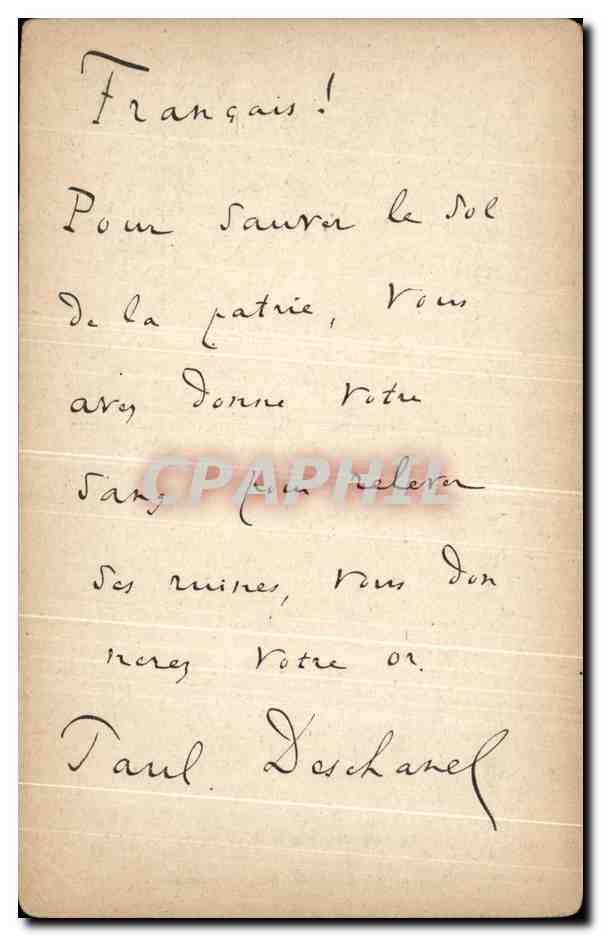 Français !
Pour sauver le sol
de la patrie, vous
avez donné votre
sang pour relever
ses ruines, vous don
nerez votre or.
Paul. Deschanel
CPAPHIL